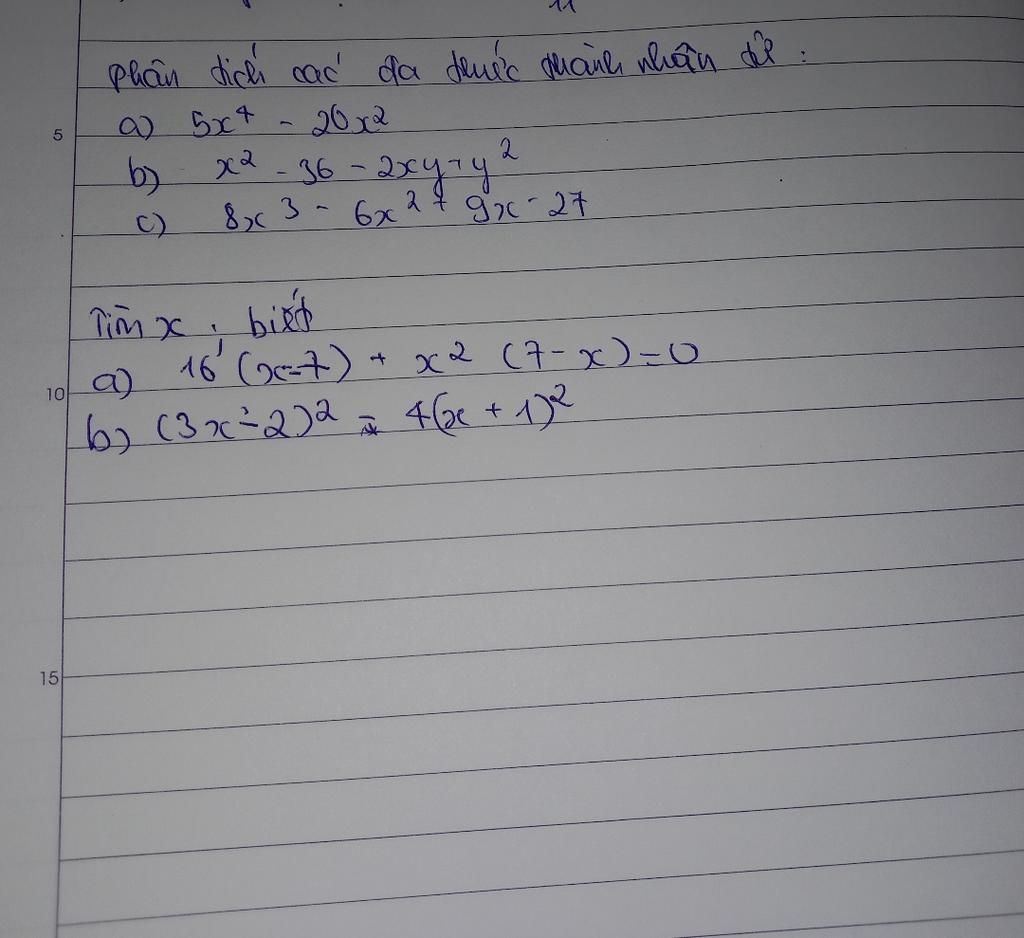 phân tích các đa thức thành nhân tử :
5
a) 5x⁴ - 20x²
b) x² - 36 - 2xy + y²
c) 8x³ - 6x² + 9x - 27
Tìm x , biết
a) 16 (x-7) + x² (7-x) = 0
10
b) (3x-2)² = 4(x + 1)²
15